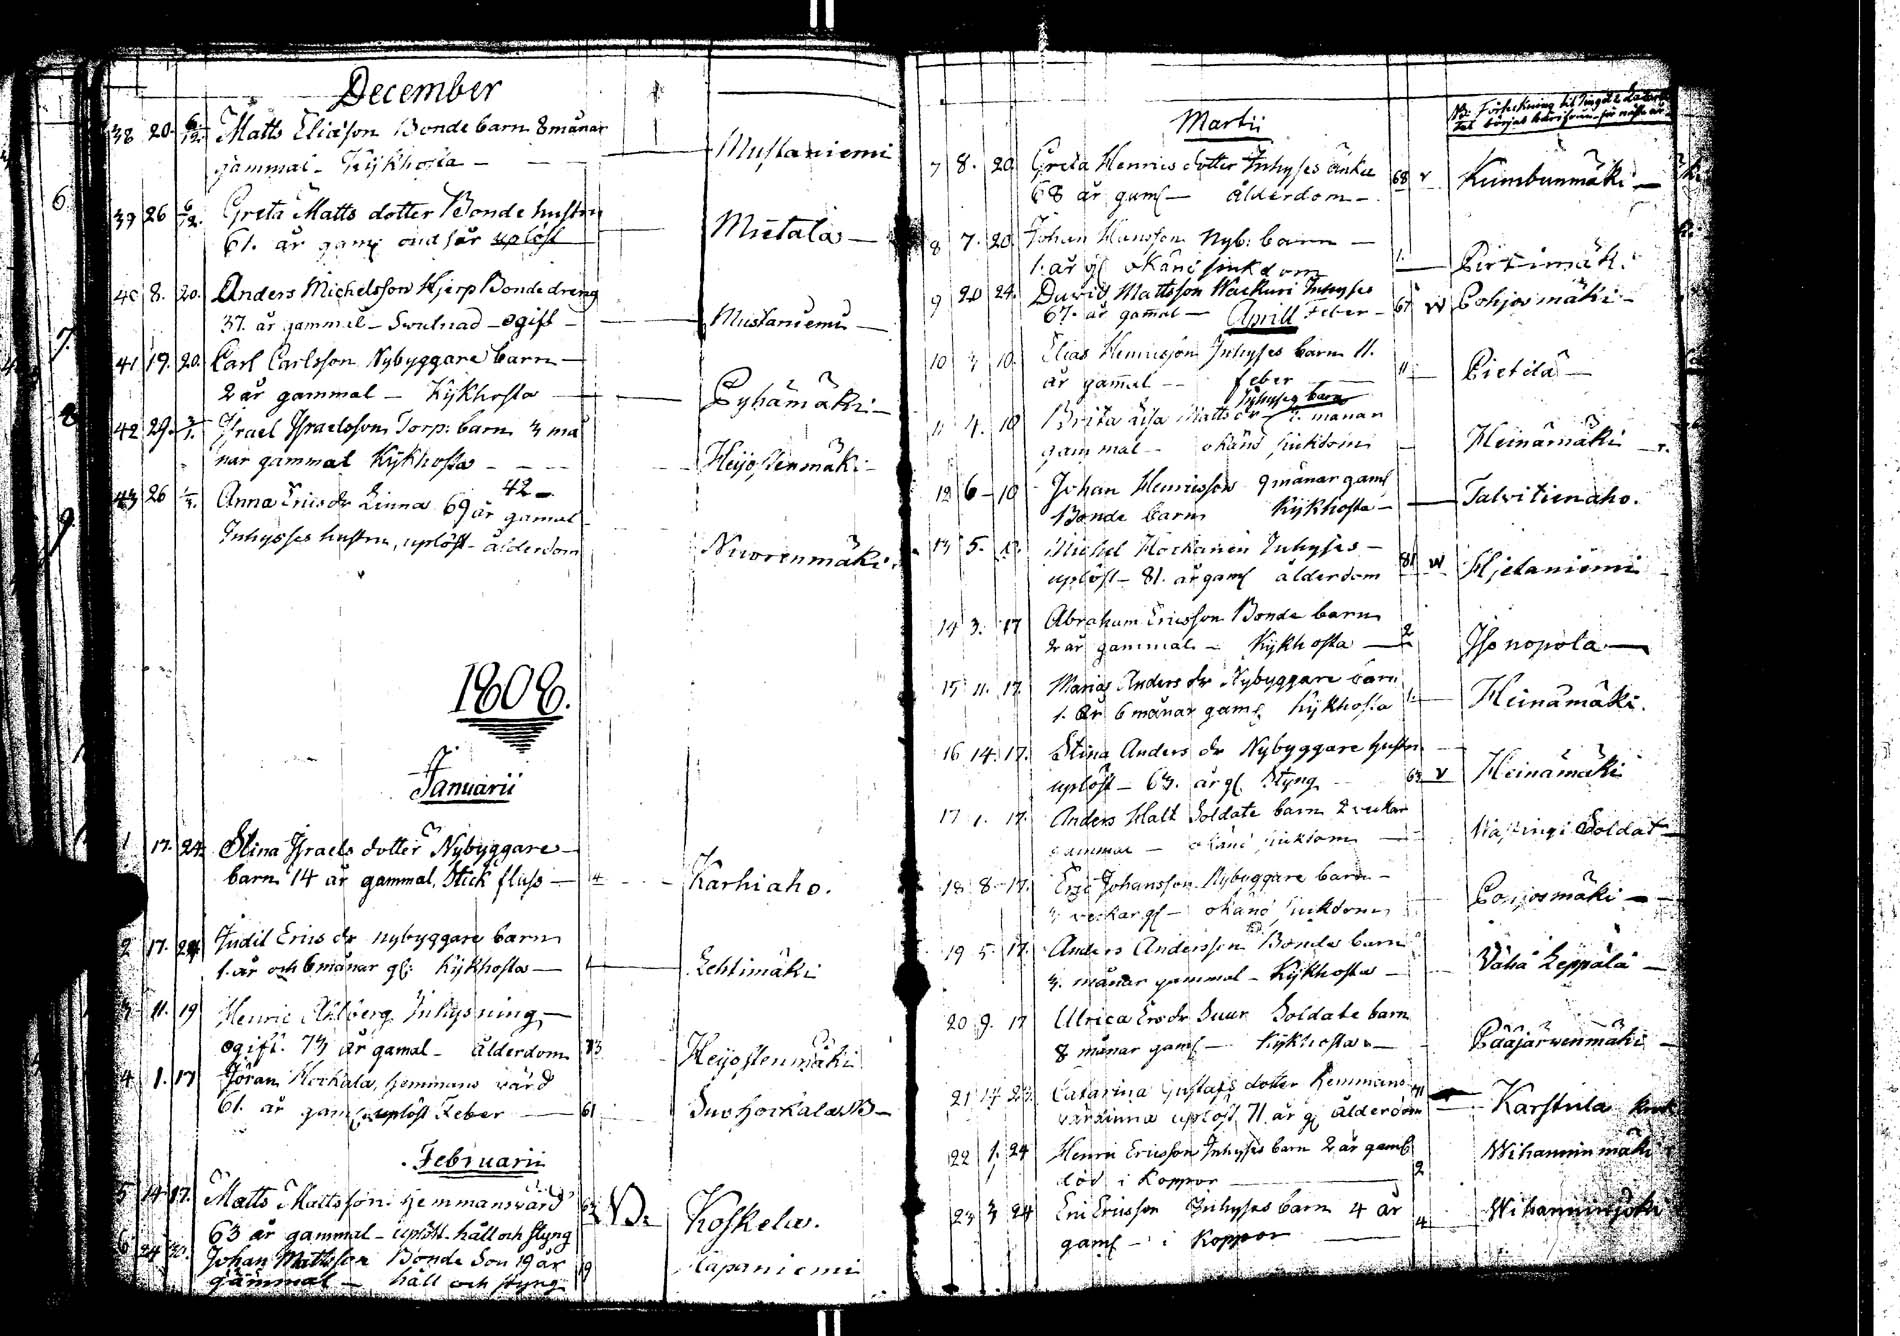 December
38 20. 6/12. Matts Eliæson Bonde barn 8 månar
gammal - Kijkhosta - Mustaniemi
39 26 6/12. Greta Matts dotter Bonde hustru
61. år gaml uplöst Mietala
40 8. 20. Anders Michelsson Hjerp Bonde dreng
37. år gammal - Svulnad - ogift - Mustaniemi
41 19. 20. Carl Carlsson Nybyggare barn
2 år gammal - Kijkhosta Pyhämäki
42 29. Israel Israelsson Torp. barn 3 må
nar gammal Kijkhosta - Heijostenmäki
42
43 26 Anna Erics dr Linna 69 år gamal
Inhysses hustru, uplöst - ålderdom Nuorenmäki
1808.
Januarii
1 17. 24. Stina Israels dotter Nybyggare
barn 14 år gammal, Stick fluss - Karhiaho.
2 17. 24 Judit Erics dr nybyggare barn
1. år och 6 månar gl. Kijkhosta - 1 Lehtimäki
3 11. 19 Henric Ahlberg Inhysning -
ogift. 73 år gamal - ålderdom 73 Heijostenmäki
4 1. 17 Jöran Horkala, hemmans värd
61. år gaml uplöst Feber - 61
Februarii
5 14 17. Matts Mattsson hemmansvärd
63 år gammal - uplöst - håll och styng 63 Koskela.
6 24 Johan Mattsson Bonde Son 19 år
gammal - håll och styng 19 Hapaniemi
Martii
7 8. 20. Greta Henrics dotter Inhyses änka
68 år gaml - ålderdom - 68 v Kumbunmäki
8 7. 20. Johan Hansson Nyb. barn -
1. år gl okänd siukdom 1. Pirtimäki
9 20 24. David Mattsson Inhyses
67. år gammal - Feber - 67 w Pohjosmäki
Aprill
10 3 10. Elias Henricsson Inhyses barn 11.
år gammal - feber 11 Pietilä
Inhyses barn
11 4. 10 Brita Lisa Matts dr månar
gammal - okänd siukdom Heinämäki
12 6 - 10 Johan Henricsson 9 månar gaml
Bonde barn Kijkhosta - Talvitienaho.
13 5. Michel Horkanen Inhyses -
uplöst - 81. år gaml ålderdom 81 w Hietaniemi
14 3. 17 Abraham Ericsson Bonde barn
2 år gammal - Kijkhosta - 2 Isonopola
15 11. 17. Maria Anders dr Nybyggare barn
1. år 6 månar gaml Kijkhosta 1. Heinämäki.
16 14. 17. Stina Anders dr Nybyggare hustru
uplöst - 63. år gl. Styng 63 v Heinämäki
17 1. 17. Anders Halt Soldate barn 2 veckor
gammal - okänd siukdom Soldat
18 8 - 17. Johansson Nybyggare barn -
3 veckor gl - okänd siukdom Pohjosmäki
19 5. 17. Anders Andersson Bonde barn
3. månar gammal - Kijkhosta - Vähä Leppälä
20 9. 17 Ulrica Ers dr Suur Soldate barn
8 månar gaml - Kijkhosta - Pääjärwenmäki
21 14 23. Catarina Gustafs dotter Hemmans
värdinna uplöst, 71 år gl ålderdom 71 Karstula
22 1. 24 Henric Ericsson Inhyses barn 2 år gaml
död i Koppor 2 Wihanninmäki
23 3 24 Eric Ericsson Inhyses barn 4 år
gaml - i Koppor 4